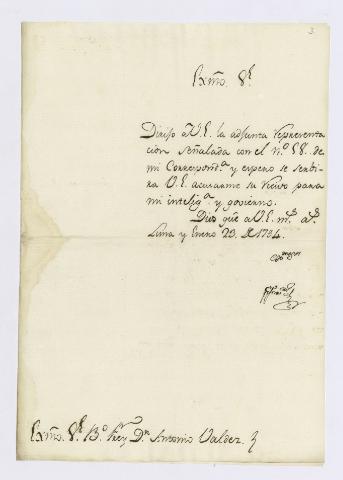 3
Exmô. S.r
Dirijo a V.E. la adjunta representa
cion señalada con el n.o 58. de
mi Correspond.a y espero se servi
ra V.E. acusarme su recivo para
mi intelig.a y govierno.
Dios gûe a V.E. m.s a.s
Lima y Enero 23. de 1794.
Exmô. S.r B.o Frey D.n Antonio Valdez